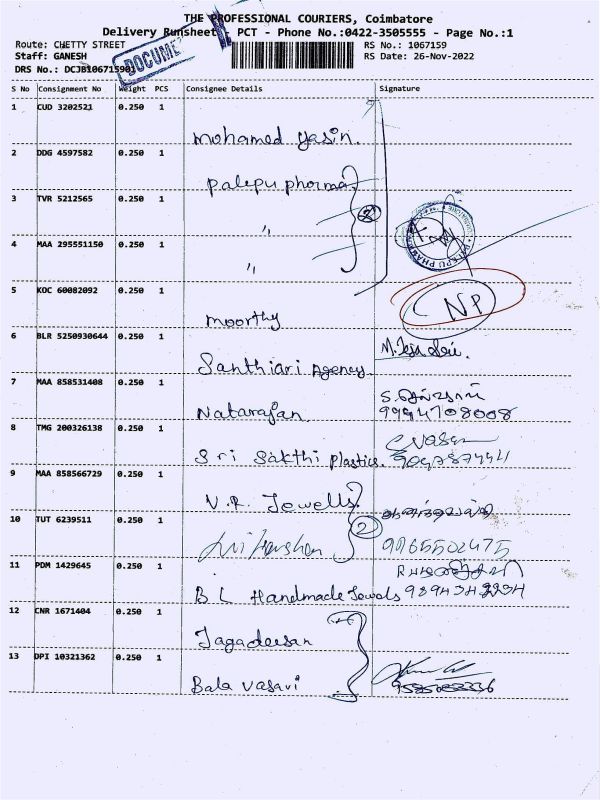 THE PROFESSIONAL COURIERS, Coimbatore
Delivery Runsheet - PCT - Phone No.:0422-3505555 - Page No.:1
Route: CHETTY STREET RS No.: 1067159
Staff: GANESH RS Date: 26-Nov-2022
DRS No.: DCJB1067159
DOCUME
S No Consignment No Weight PCS Consignee Details Signature
1 CUD 3202521 0.250 1 Mohamed Yasin.
2 DDG 4597582 0.250 1 Palepu pharma
3 TVR 5212565 0.250 1 "
4 MAA 295551150 0.250 1 "
5 KOC 60082092 0.250 1 Moorthy NP
6 BLR 5250930644 0.250 1 Santhiari Agency.
7 MAA 858531408 0.250 1 Natarajan 9994708008
8 TMG 200326138 0.250 1 Sri Sakthi Plastics.
9 MAA 858566729 0.250 1 V.R. Jewells
10 TUT 6239511 0.250 1 2 9965502475
11 PDM 1429645 0.250 1 B L Handmade Jewels
12 CNR 1671404 0.250 1 Jagadeesan
13 DPI 10321362 0.250 1 Bala Vasavi